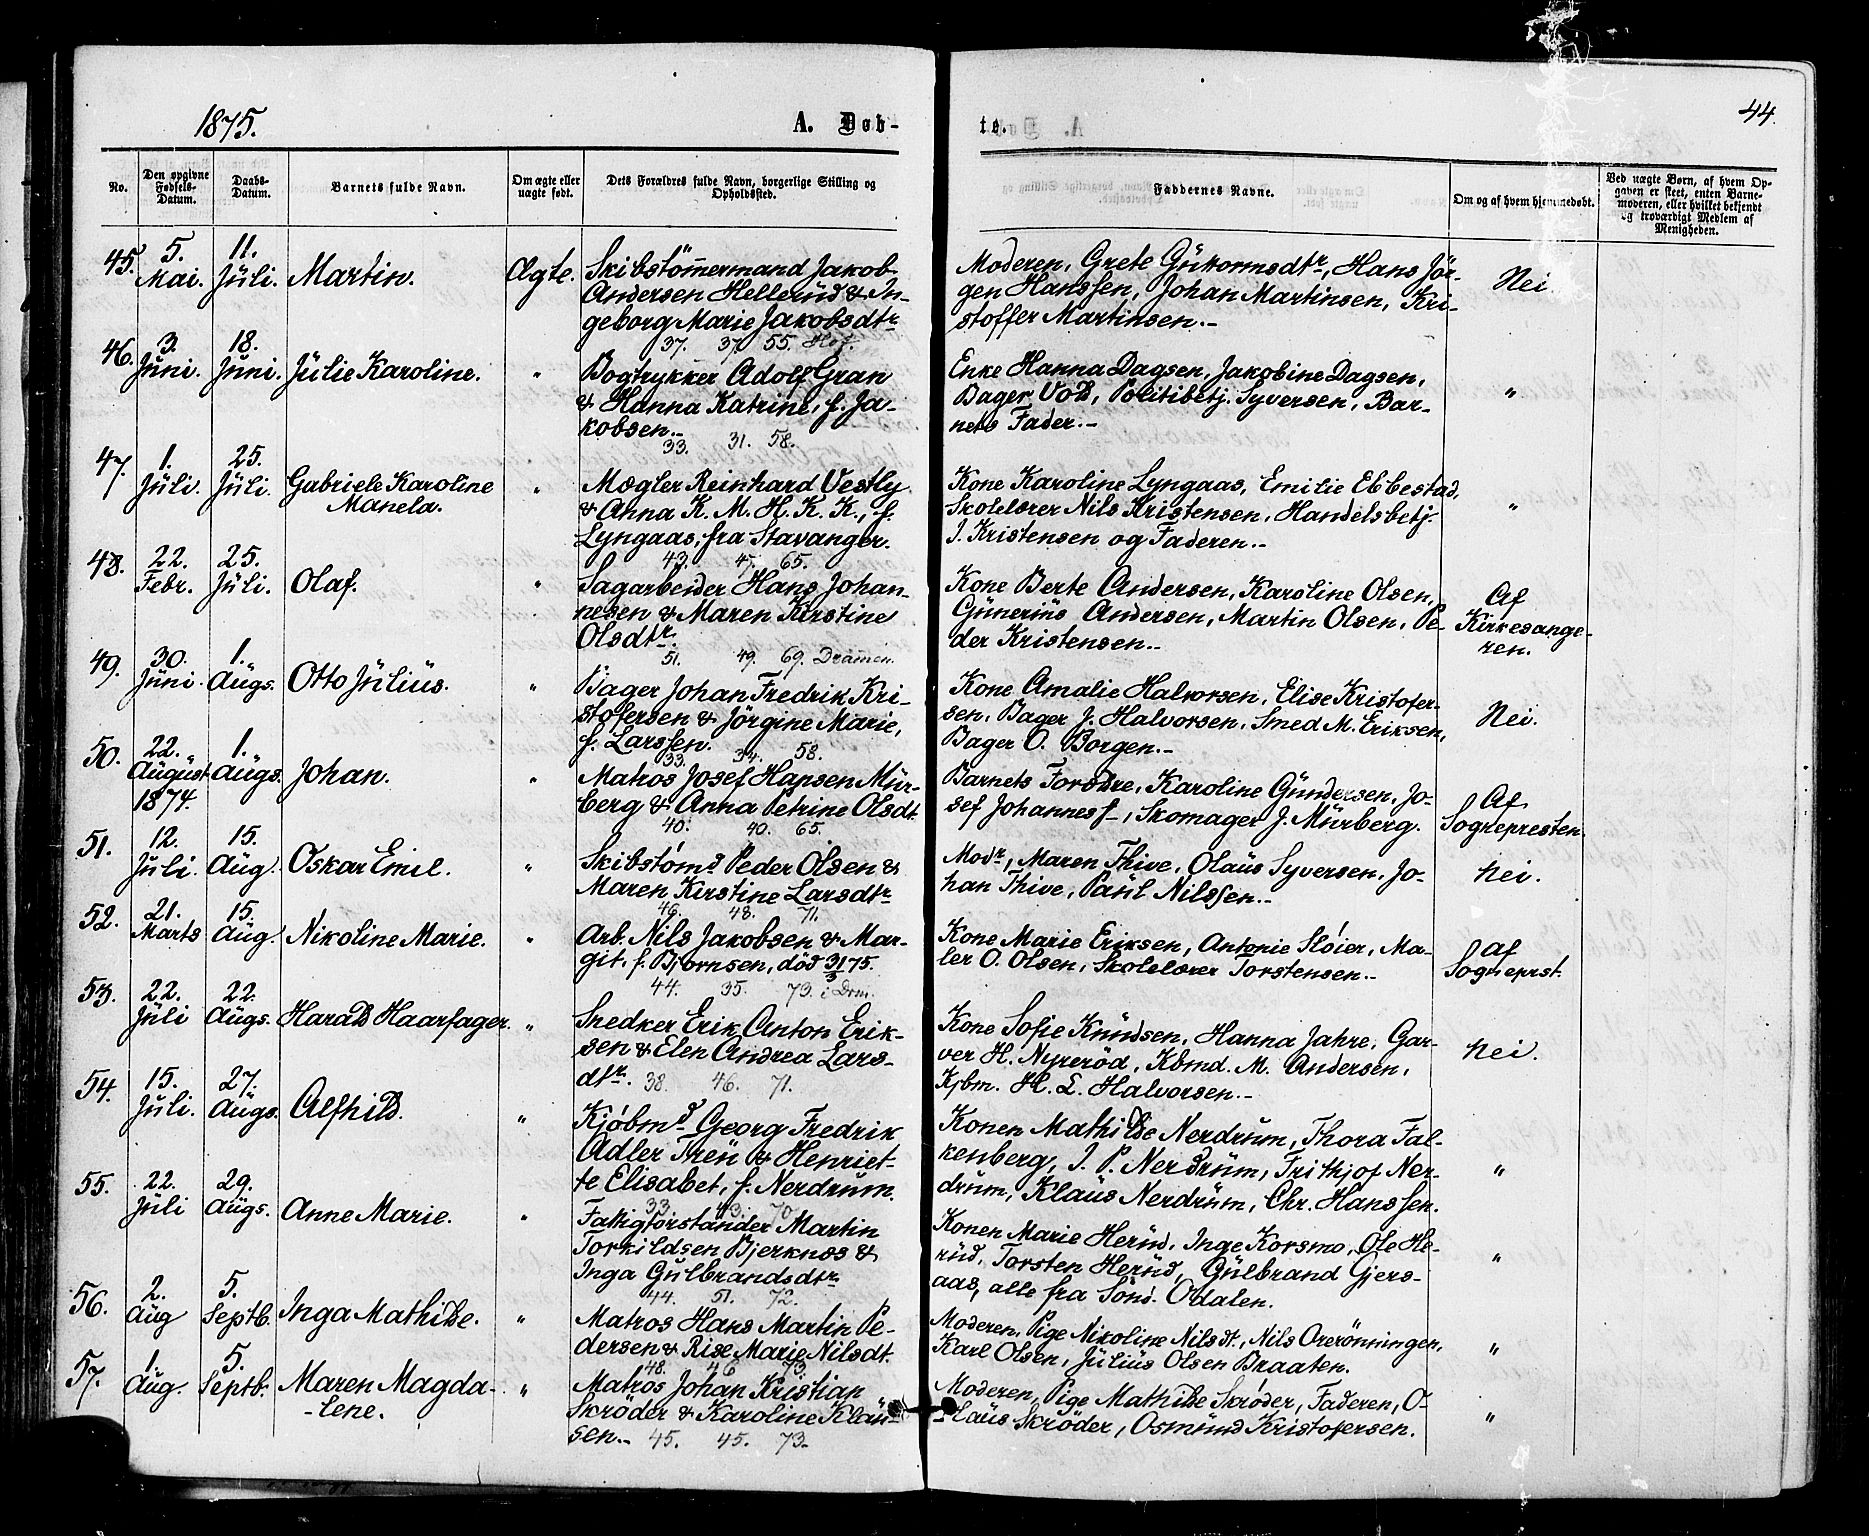 1875.
A. Døb-
te.
44.
No.
Den opgivne Fødsels-Datum.
Daabs-Datum.
Barnets fulde Navn.
Om ægte eller uægte født.
Dets Forældres fulde Navn, borgerlige Stilling og Opholdssted.
Faddernes Navne.
Om og af hvem hjemmedøbt.
Ved uægte Børn, af hvem Op-
gaven er skeet, enten Barne-
moderen, eller hvilket bekjendt
og troværdigt Medlem af
Menigheden.
45. 5. Mai. 11. Juli. Martin. Ægte.
Skibstømmermand Jakob
Andersen Hellerud & In-
geborg Marie Jakobsdtr
37. 37. 55. Hof.
Moderen, Grete Gulormsdtr, Hans Jør-
gen Hanssen, Johan Martinsen, Kri-
stoffer Martinsen.-
Nei
46. 3. Juni. 18. Juni. Julie Karoline. "
Bogtrykker Adolf Gran
& Hanna Katrine, f. Ja-
kobsen.-
33. 31. 58.
Enke Hanna Dagsen, Jakobine Dagsen,
Bager Vold, Politibetj. Syversen, Bar-
nets Fader.-
"
47. 1. Juli. 25. Juli. Gabriele Karoline
Manela. "
Mægler Reinhard Vestly
& Anna K. M. H. K. K., f.
Lyngaas, fra Stavanger.
43. 47. 65.
Kone Karoline Lyngaas, Emilie Ebbestad,
Skolelærer Nils Kristensen, Handelsbetj.
I. Kristensen og Faderen.-
"
48. 22. Febr. 25. Juli. Olaf. "
Sagarbeider Hans Johan-
nesen & Maren Kirstine
Olsdtr.
51. 49. 69. Drammen.
Kone Berte Andersen, Karoline Olsen,
Gunerius Andersen, Martin Olsen, Pe-
der Kristensen.-
Af
Kirkesange-
ren.
49. 30. Juni. 1. Augs. Otto Julius. "
Bager Johan Fredrik Kri-
stofersen & Jörgine Marie,
f. Larssen.
33. 34. 58.
Kone Amalie Halvorsen, Elise Kristofer-
sen, Bager J. Halvorsen, Smed M. Eriksen,
Bager O. Borgen.-
Nei.
50. 22. August 1874. 1. Augs. Johan. "
Matros Josef Hansen Mur-
berg & Anna Petrine Olsdt.
40. 40. 65.
Barnets Forældre, Karoline Gundersen, Jo-
sef Johannesf-, Skomager J. Murberg.
Af
Sognepresten.
51. 12. Juli. 15. Aug. Oskar Emil. "
Skibstømd Peder Olsen &
Maren Kirstine Larsdtr
46. 48. 71.
Modr, Maren Thive, Olaus Syversen, Jo-
han Thive, Paul Nilssen.-
Nei.
52. 21. Marts 15. Aug. Nikoline Marie. "
Arb. Nils Jakobsen & Mar-
git, f. Bjørnsen, död 31/3 75.
44. 35. 73. i Drm.
Kone Marie Eriksen, Antonie Sløier, Ma-
ler O. Olsen, Skolelærer Torstensen.-
af
Sogneprst.
53. 22. Juli 22. Augs. Harald Haarfager. "
Snedker Erik Anton Erik-
sen & Elen Andrea Lars-
dtr. 38. 46. 71.
Kone Sofie Knudsen, Hanna Jahre, Gar-
ver H. Nyreröd, Kbmd. M. Andersen,
Kjbm. H. L. Halvorsen.-
Nei.
54. 15. Juli. 27. Augs. Alfhild. "
Kjøbmd Georg Fredrik
Adler Treu & Henriet-
te Elisabet, f. Nerdrum.
33. 43. 70
Konen Mathilde Nerdrum, Thora Fal-
kenberg, I. P. Nerdrum, Frithjof Ner-
drum, Klaus Nerdrum, Chr. Hanssen.
"
55. 22. Juli 29. Augs. Anne Marie. "
Fattigforstander Martin
Torkildsen Bjerknes &
Inga Gulbrandsdtr.
44. 51. 72.
Konen Marie Herud, Inge Korsmo, Ole He-
rud, Torsten Herud, Gulbrand Gjers-
aas, alle fra Sönd. Odalen.
"
56. 2. Aug 5. Septb. Inga Mathilde. "
Matros Hans Martin Pe-
dersen & Rise Marie Nilsdt.
48. 46 73.
Moderen, Pige Nikoline Nilsdt, Nils Orerönningen,
Karl Olsen, Julius Olsen Braaten.
"
57. 1. Aug. 5. Septb. Maren Magda-
-lene. "
Matros Johan Kristian
Skröder & Karoline Klau-
sen.- 45. 45. 73.
Moderen, Pige Mathilde Skrøder, Faderen, O-
laus Skröder, Osmund Kristofersen.
"